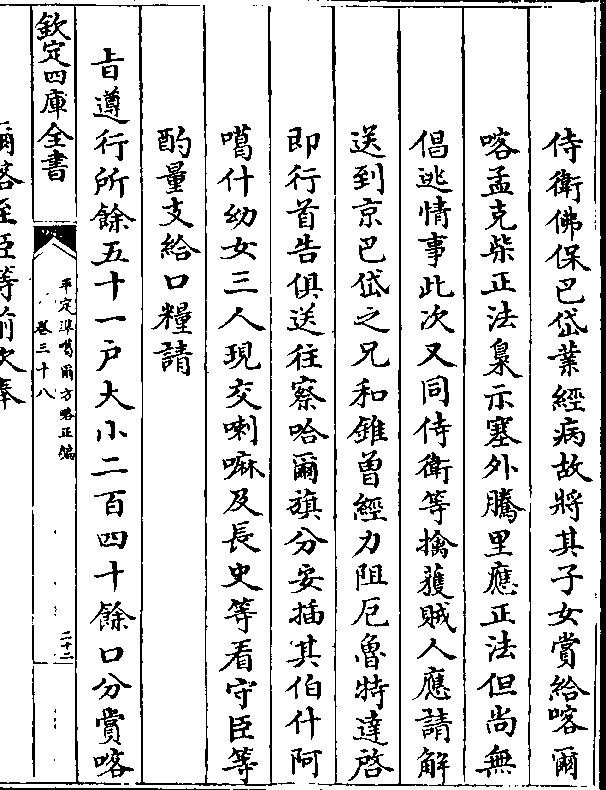 侍衛佛保巴岱業經病故將其子女賞給喀爾
喀孟克柴正法梟示塞外騰里應正法但尚無
倡逃情事此次又同侍衛等擒獲賊人應請解
送到京巴岱之兄和錐曽經力阻厄魯特達啓
即行首告俱送往察哈爾旗分安插其伯什阿
噶什幼女三人現交喇嘛及長史等看守臣等
酌量支給口糧請
旨遵行所餘五十一户大小二百四十餘口分賞喀
欽定四庫全書
平定準噶爾方略正編
卷三十八
二十二